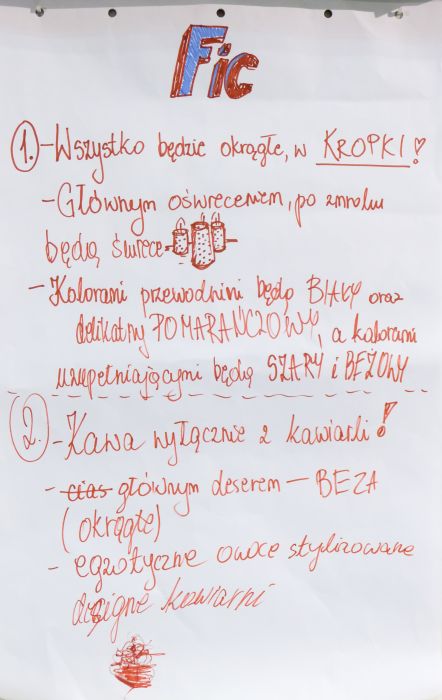 Fic
1. - Wszystko będzie okrągłe, w KROPKI!
- Głównym oświeceniem, po zmroku
będą świece
- Kolorami przewodnimi będą BIAŁY oraz
delikatny POMARAŃCZOWY, a kolorami
uzupełniającymi będą SZARY i BEŻOWY
2. - Kawa wyłącznie z kawiarki!
- cias głównym deserem - BEZA
(okrągłe)
- egzotyczne owoce stylizowane
kawiarni